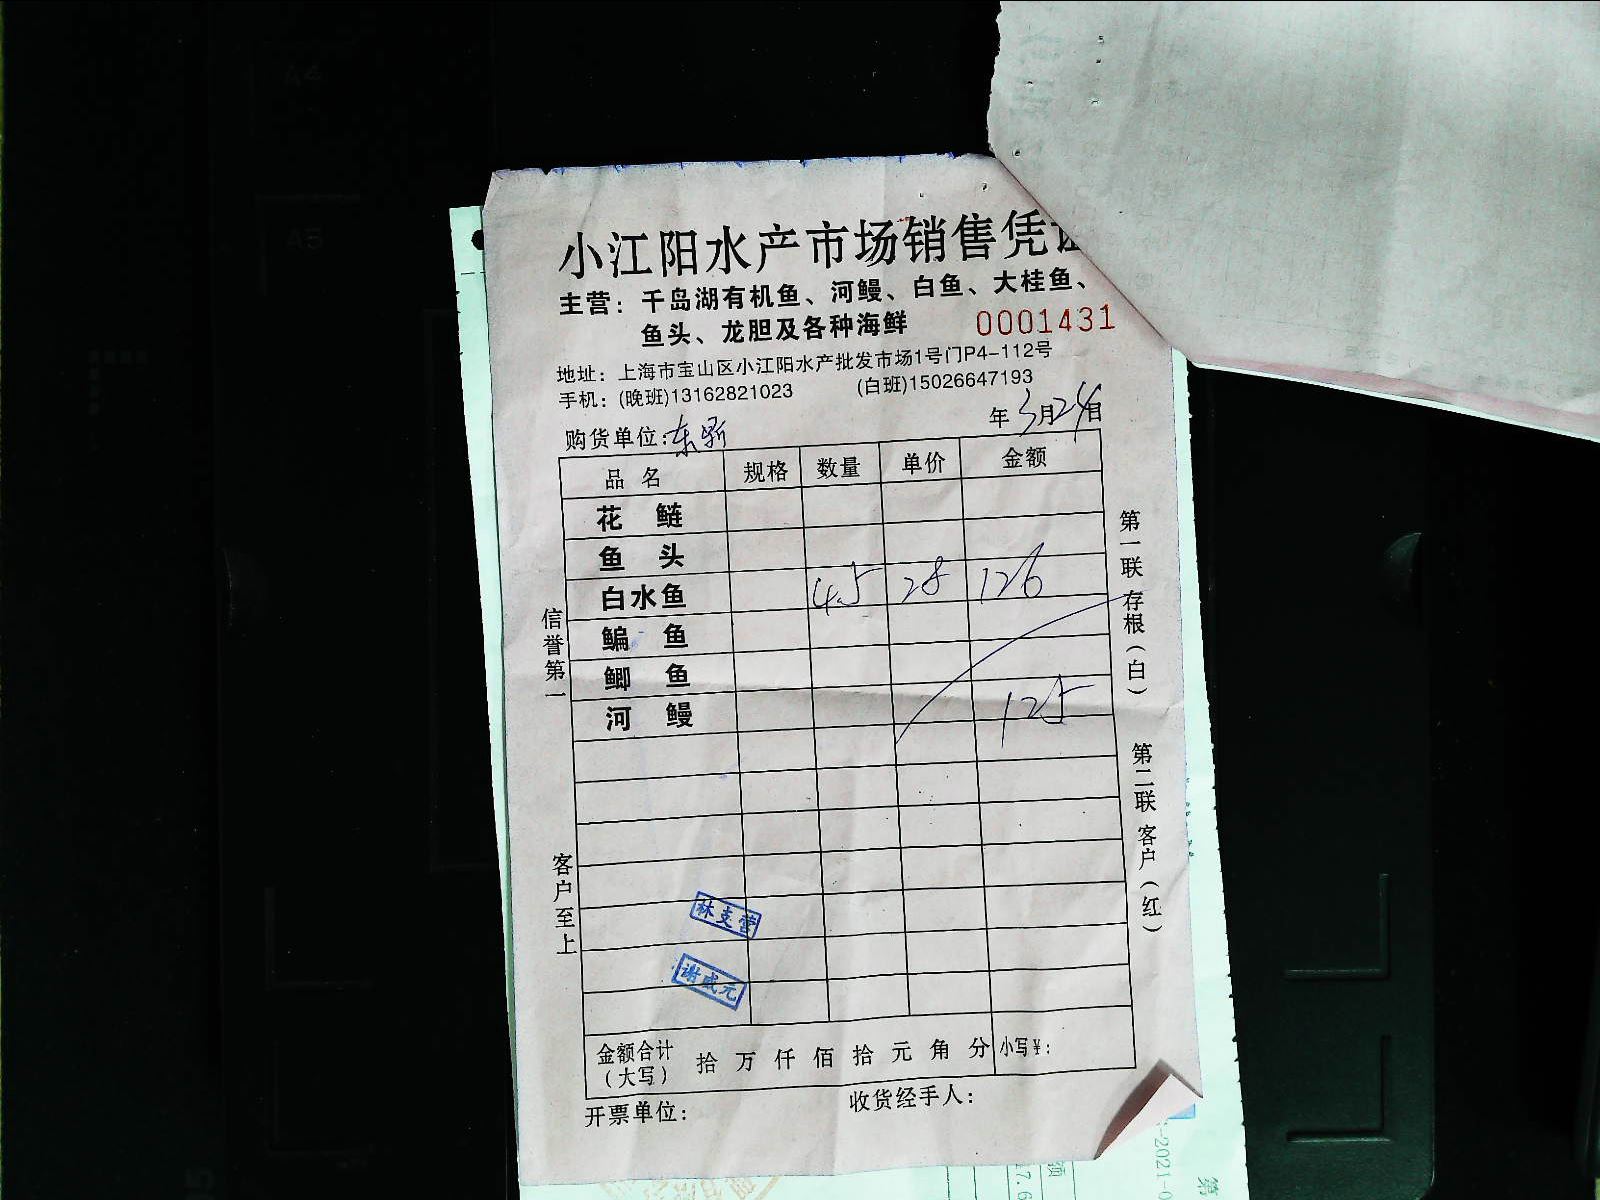 小江阳水产市场销售凭证
主营：千岛湖有机鱼、河鳗、白鱼、大桂鱼、
鱼头、龙胆及各种海鲜
0001431
地址：上海市宝山区小江阳水产批发市场1号门P4-112号
手机：(晚班)13162821023 (白班)15026647193
购货单位：东 年3月24日
品名 规格 数量 单价 金额
花鲢
鱼头
白水鱼 4.5 28 126
鳊鱼
鲫鱼
河鳗 125
林支营
谢成元
金额合计（大写） 拾万仟佰拾元角分 小写￥：
开票单位： 收货经手人：
信誉第一
客户至上
第一联 存根（白）
第二联 客户（红）
A4
A5
-2021-0
17.6
额
第